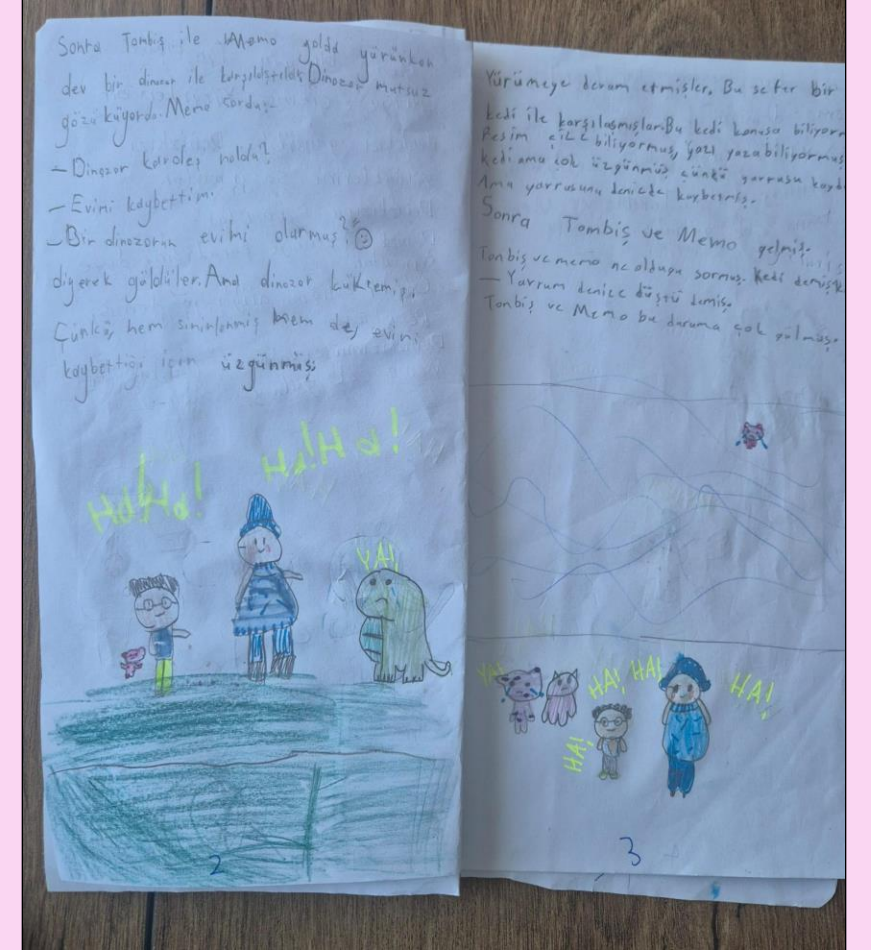 Sonra Tombiş ile Memo yolda yürürken
dev bir dinozor ile karşılaştılar. Dinozor mutsuz
gözüküyordu. Memo sordu:
– Dinozor kardeş noldu?
– Evimi kaybettim.
– Bir dinozorun evimi olurmuş?
diyerek güldüler. Ama dinozor
Çünkü, hem sinirlenmiş hem de, evini
kaybettiği için üzgünmüş.
HaHa!
Ha!Ha!
YA!
2
Yürümeye devam etmişler. Bu sefer bir
kedi ile karşılaşmışlar. Bu kedi konuşa biliyor
Resim çize biliyormuş, yazı yazabiliyormuş
kedi ama çok üzgünmüş çünkü yavrusu kayb
Ama yavrusunu denizde kaybetmiş.
Sonra Tombiş ve Memo gelmiş.
Tonbiş ve memo ne olduğu sormuş. kedi demiş
– Yavrum denize düştü demiş.
Tonbiş ve Memo bu duruma çok gülmüş.
YA!
HA! HA!
HA!
HA!
3